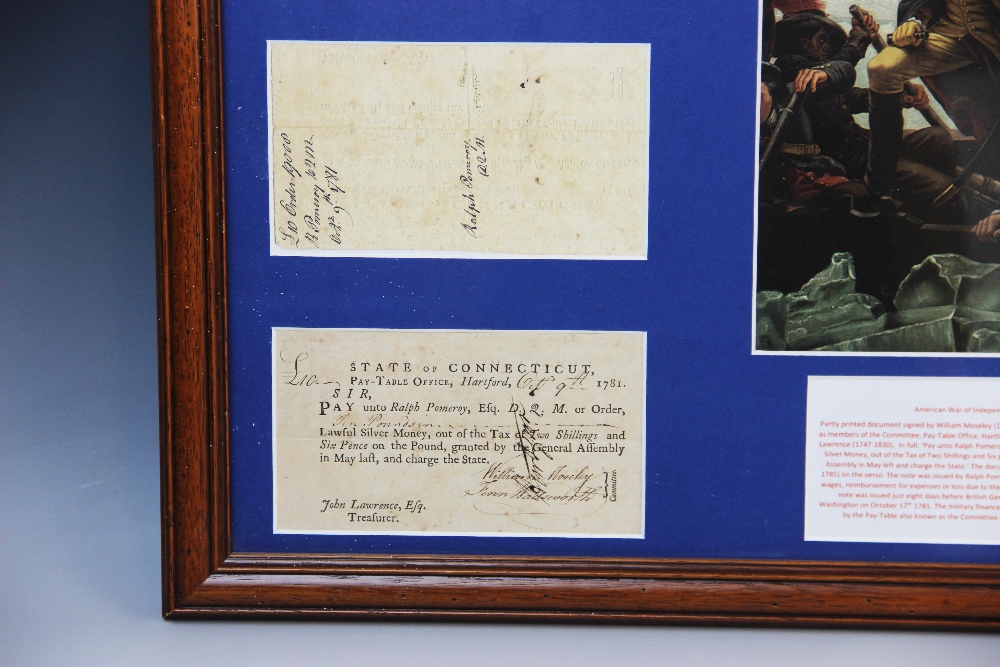 £10 Order
R Pomeroy DQM
Octr 9th 1781
Ralph Pomeroy
D.Q.M.
STATE OF CONNECTICUT,
£10— PAY-TABLE OFFICE, Hartford, Octr 9th 1781.
SIR,
PAY unto Ralph Pomeroy, Esq. D. Q. M. or Order,
Ten Pounds
Lawful Silver Money, out of the Tax of Two Shillings and
Six Pence on the Pound, granted by the General Assembly
in May last, and charge the State.
William Moseley
Fenn Wadsworth
Committee.
John Lawrence, Esq.
Treasurer.
American War of Indepen
Partly printed document signed by William Moseley (1
as members of the Committee, Pay-Table Office, Hartf
Lawrence (1747-1830). In full: "Pay unto Ralph Pomero
Silver Money, out of the Tax of Two Shillings and Six p
Assembly in May left and charge the State." The docu
1785) on the verso. The note was issued by Ralph Pom
wages, reimbursement for expenses or loss due to the
note was issued just eight days before British Gen
Washington on October 17th 1781. The military finance
by the Pay-Table also known as the Committee